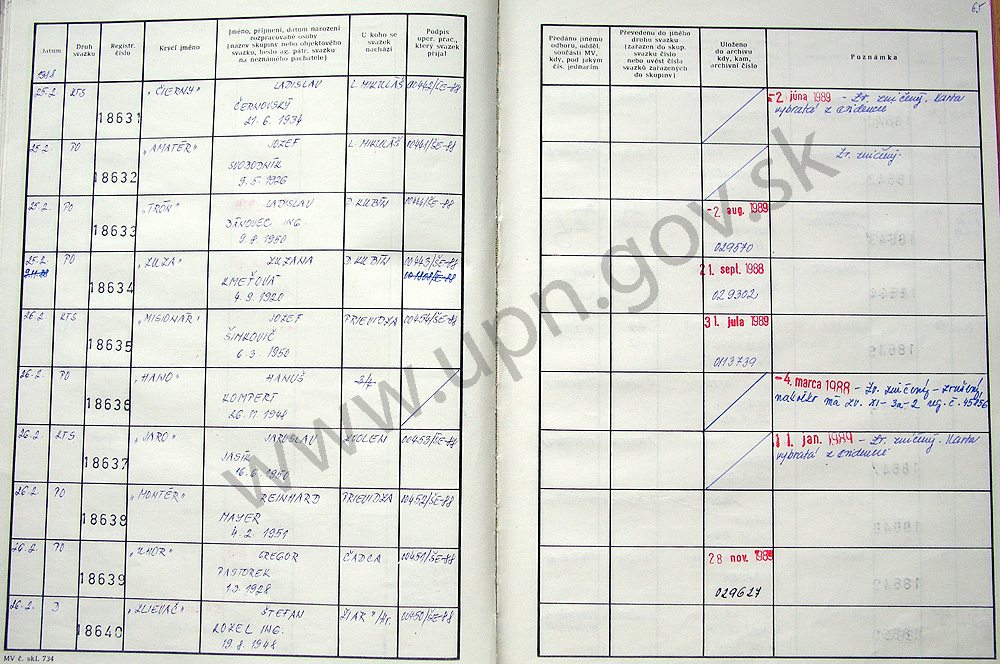 65
Datum
Druh svazku
Registr. číslo
Krycí jméno
Jméno, příjmení, datum narození
rozpracované osoby
(název skupiny nebo objektového
svazku, heslo ag. pátr. svazku
na neznámého pachatele)
U koho se
svazek
nachází
Podpis
oper. prac.,
který svazek
přijal
Předáno jinému
odboru, odděl.
součásti MV,
kdy, pod jakým
čís. jednacím
Převedeno do jiného
druhu svazku
(zařazen do skup.
svazku číslo
nebo uvést čísla
svazků zařazených
do skupiny)
Uloženo
do archivu
kdy, kam,
archivní číslo
Poznámka
1988
25.2. KTS 18631 „ČIERNY" LADISLAV L. MIKULÁŠ 00442/ŠE-88
ČERNOVSKÝ
21. 6. 1934
-2. júna 1989 - Zv. zničený. Karta
vybratá z evidencie
25.2. PO 18632 „AMATÉR" JOZEF L. MIKULÁŠ 00441/ŠE-88
SVOBODNÍK
9. 5. 1926
Zv. zničený.
25.2. PO 18633 „TRÓN" LADISLAV D. KUBÍN 00444/ŠE-88
BÁNOVEC ING.
9. 8. 1950
-2. aug. 1989
029570
25.2. PO 18634 „ZUZA" ZUZANA D. KUBÍN 00443/ŠE-88
KMEŤOVÁ
4. 9. 1920
21. sept. 1988
029302
26.2. KTS 18635 „MISIONÁR" JOZEF PRIEVIDZA 00454/ŠE-88
ŠIMKOVIČ
6. 3. 1950
31. júla 1989
0113739
26.2. PO 18636 „HANO" HANUŠ
KOMPERT
26. 11. 1948
-4. marca 1988 - Zv. zničený - zrušený,
nakoľko má zv. XI-3a-2 reg. č. 45056
26.2. KTS 18637 „JARO" JAROSLAV ZVOLEN 00453/ŠE-88
JASÍK
16. 6. 1950
11. jan. 1989 - Zv. zničený. Karta
vybratá z evidencie
26.2. PO 18638 „MONTÉR" REINHARD PRIEVIDZA 00452/ŠE-88
MAYER
4. 2. 1951
26.2. PO 18639 GREGOR ČADCA 00451/ŠE-88
PASTOREK
1928
28 nov. 1989
029627
26.2. D 18640 „ZLIEVAČ" ŠTEFAN ŽIAR n/Hr. 00450/ŠE-88
KOZEL ING.
19. 8. 1948
MV č. skl. 734
www.upn.gov.sk